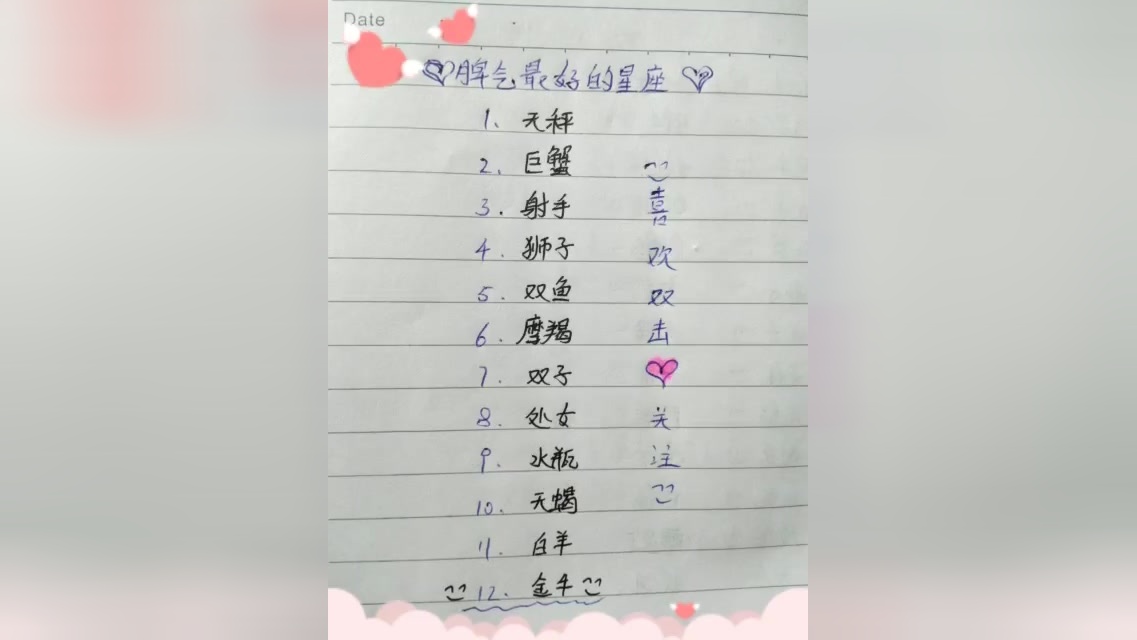 Date
脾气最好的星座
1、天秤
2、巨蟹
3.射手
4.狮子
5.双鱼
6.摩羯
7.双子
8.处女
9.水瓶
10.天蝎
11.白羊
12.金牛
喜
欢
双
击
关
注